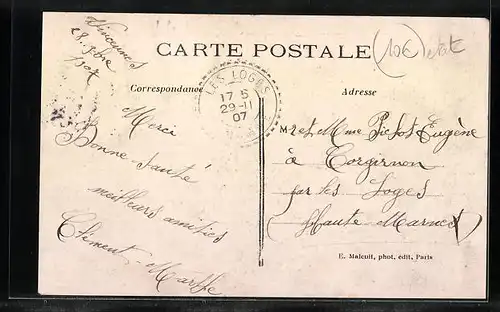 Vincennes
28 9bre
1907
CARTE POSTALE
(10€) état
Correspondance
Adresse
LES LOGES
17 S
29-11
07
Merci
Bonne santé
meilleurs amitiés
Clément-Marthe
Mr et Mme Pichot Eugène
à Torcenay
par les Loges
(Haute Marne)
E. Malcuit, phot, édit, Paris